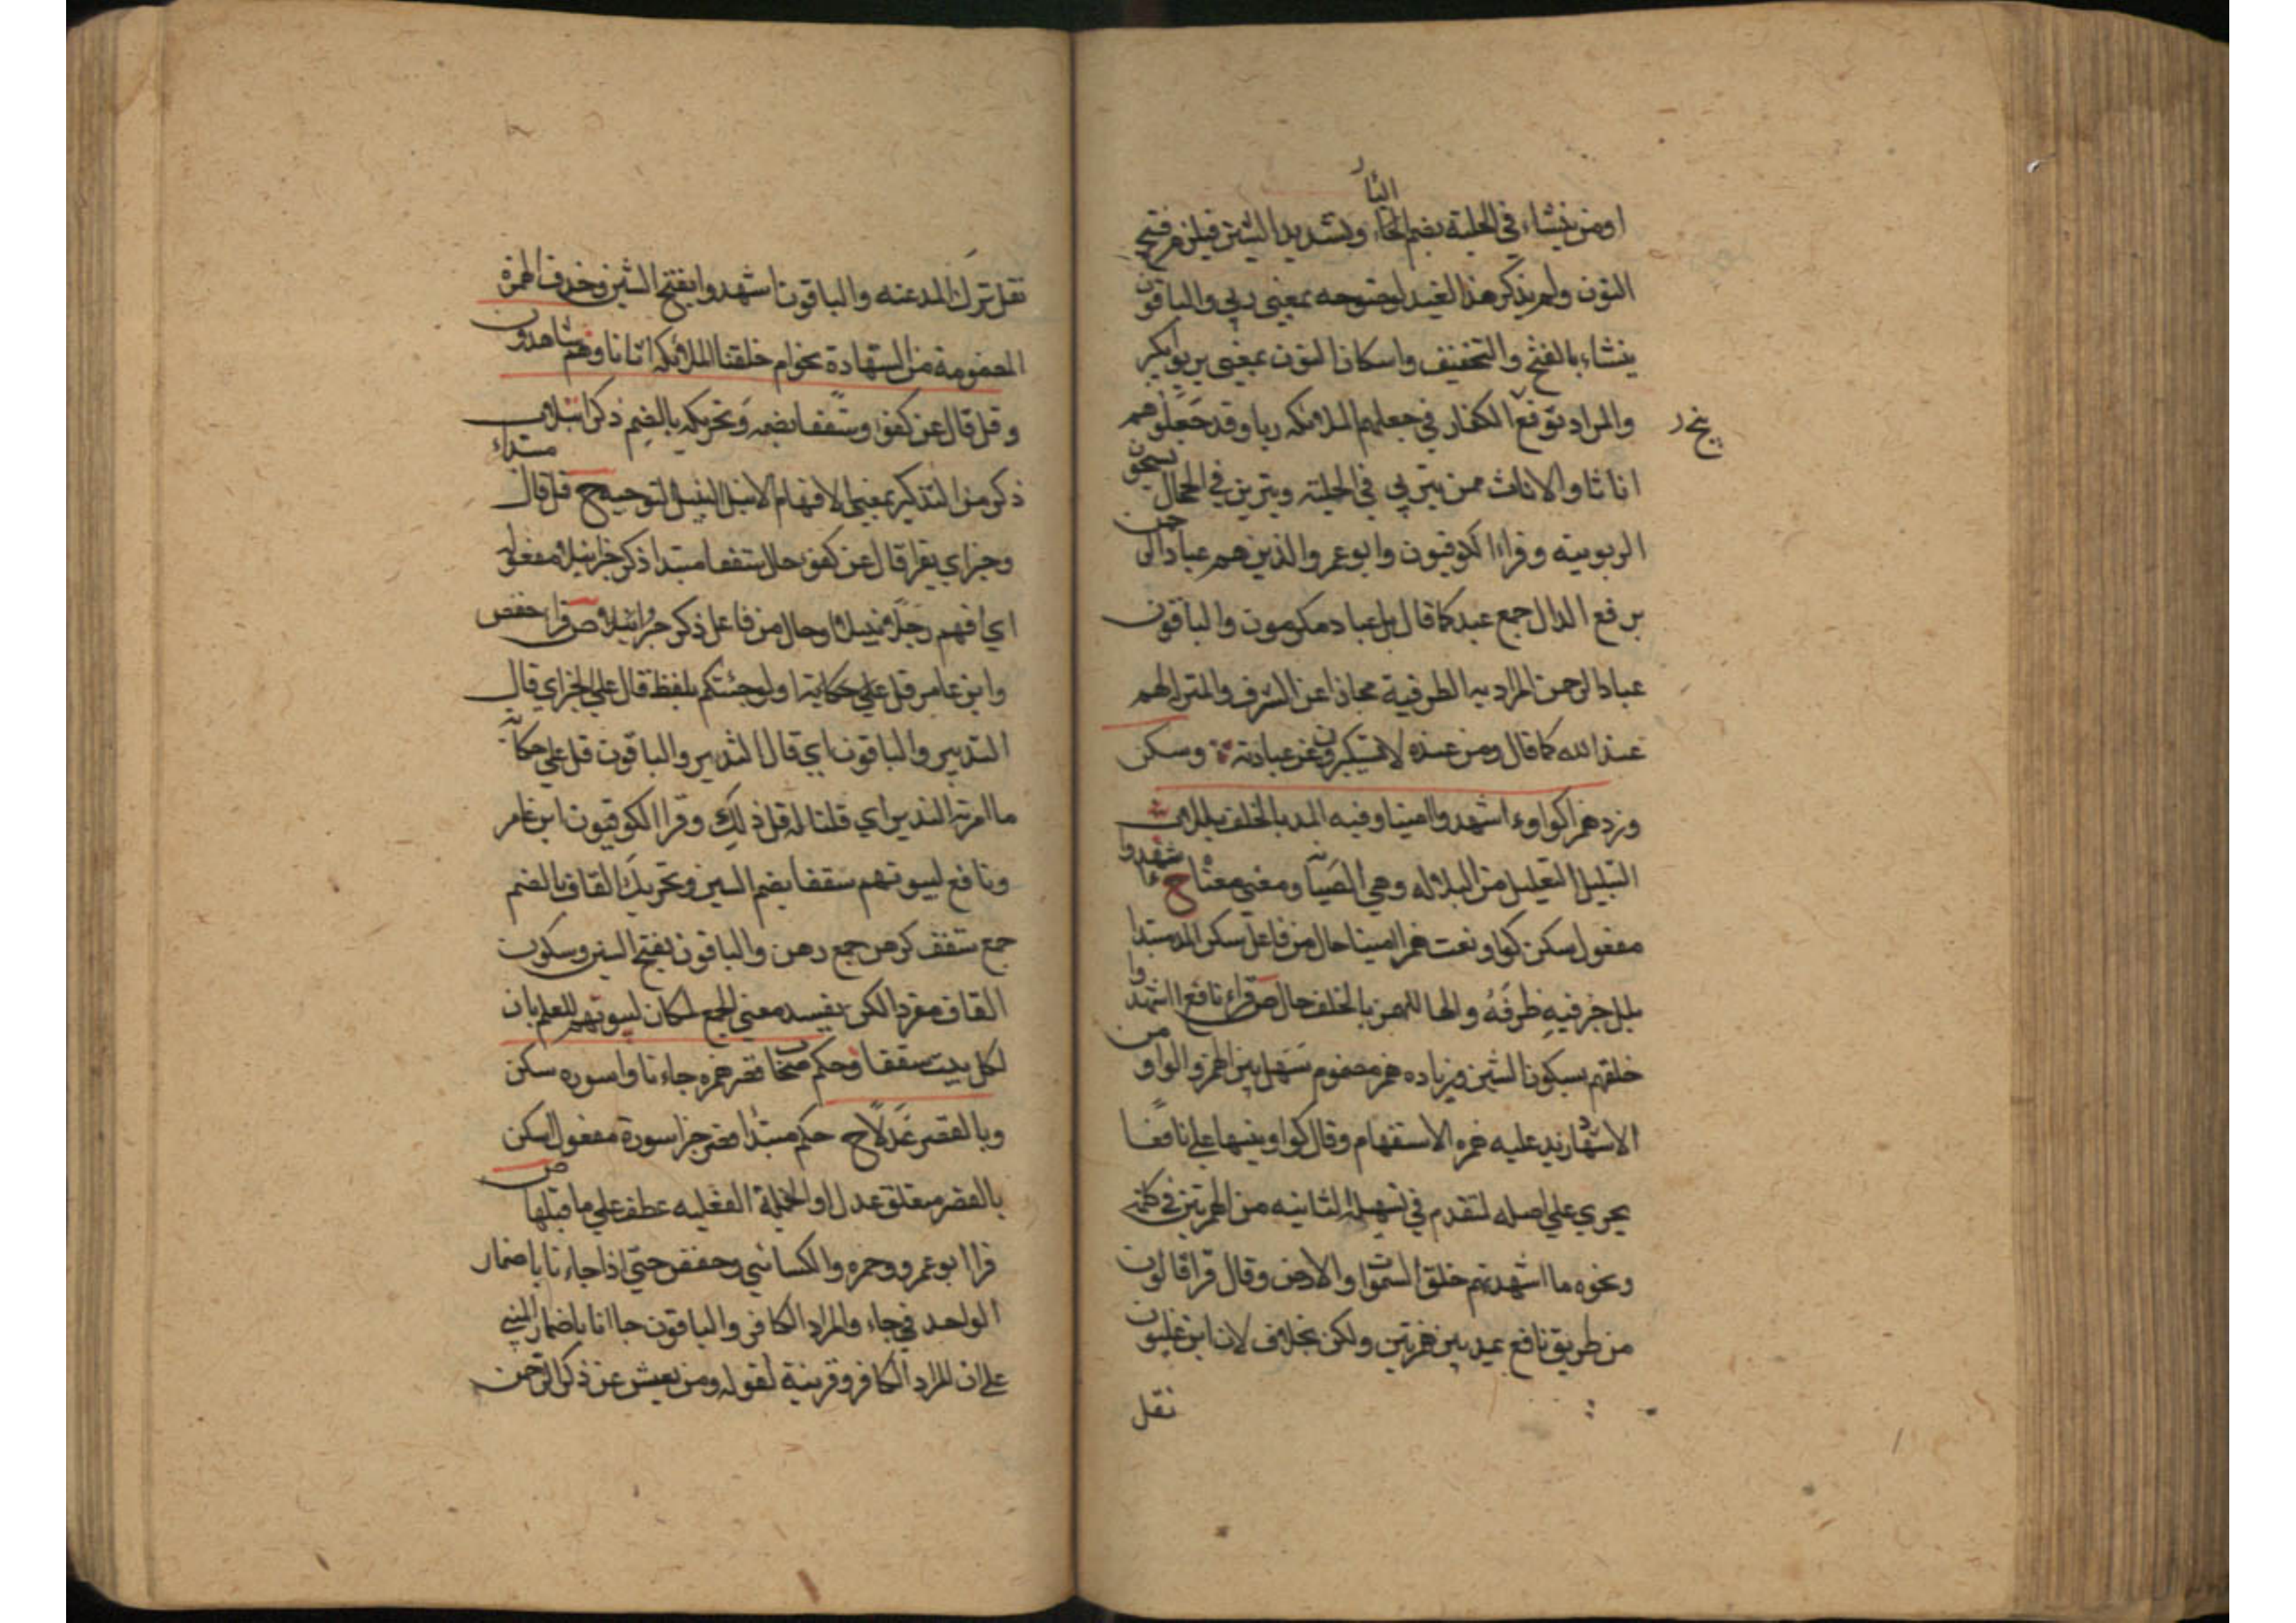 اومن ينشاء في الحلية بضم الياء وتشديد الشين فيلزم فتح
النون ولم يذكر هذا القيد لوضوحه بمعنى ربي والباقون
ينشاء بالفتح والتخفيف واسكان النون بمعنى يربو ويكبر
والمراد توقع الكفار في جعلهم الملائكه ربا وقد جعلوهم
اناثا والاناث ممن يتربي في الحلية ويتزين في الحجال
الربوبيته وقراءا الكوفيون وابو عمرو الذين هم عباد الرحمن
برفع الدال جمع عبد كما قال بل عباد مكرمون والباقون
عباد الرحمن المراد به الظرفية مجازا عن الشرف والمنزلهم
عند الله كما قال ومن عنده لا يستكبرون عن عبادته وسكن
وزد همزا كواو ءاشهدوا امينا وفيه المد بالخلف بللا
التبليل التقليل من البلاله وهي ومعنى ح شهدوا
مفعول سكن كواو نعت همزا امينا حال من فاعل سكن المد مبتدا
بلل خبر فيه ظرفه والها للهمز بالخلف حال ص قراء نافع ااشهدوا
خلقهم بسكون الشين وزياده همز مضموم تسهل بين الهمز والواو من
الاشهاد يزيد عليه همزه الاستفهام وقال كواو تنبيها على نافعا
يجري على اصله لتقدم في تسهيل الثانيه من الهمزتين في كلمه
ونحوه ما اشهدتهم خلق السموات والارض وقال قرا قالون
من طريق نافع بمد بين همزتين ولكن بخلاف لان ابن غلبون
نقل
نقل ترك المد عنه والباقون اشهدوا بفتح الشين وحذف الهمزه
المضمومة من الشهادة نحو ام خلقنا الملائكه اناثا وهم شاهدون
وقل قال عن كفؤ وسقفا بضمه وتحريكه بالضم ذكر انبلا
ذكر من التذكير بمعنى الافهام الانبل النبيل التوجيه ح قل قال مبتداء
وخبر اي يقرا قال عن كفؤ حال سقفا مبتدا ذكر خبر انبلا مفعوله
اي افهم رجلا نبيلا او حال من فاعل ذكر خبر انبلا ص قرا حفص
وابن عامر قل على حكاية اولو جئتكم بلفظ قال على الخبر اي قال
النذير والباقون اي قال النذير والباقون قل على حكاية
ما امر به النذير اي قلنا له قل ذلك وقرا الكوفيون ابن عامر
ونافع لبيوتهم سقفا بضم السين وتحريك القاف بالضم
جمع سقف كرهن جمع رهن والباقون بفتح السين وسكون
القاف مفرد الكن يفيد معنى الجمع لمكان لبيوتهم للعلم بان
لكل بيت سقفا وحكم صحاب قصر همزه جاءنا واسوره سكن
وبالقصر عدلا ح حكم مبتدا قصر خبر اسورة مفعول سكن
بالقصر متعلق عدلا والجملة الفعليه عطف على ما قبلها ص
قرا ابو عمرو وحمزه والكسائي وحفص حتى اذا جاءنا باضمار
الواحد في جاء والمراد الكافر والباقون جاانا باضمار المثنى
على ان المراد الكافر وقرينة لقوله ومن يعش عن ذكر الرحمن